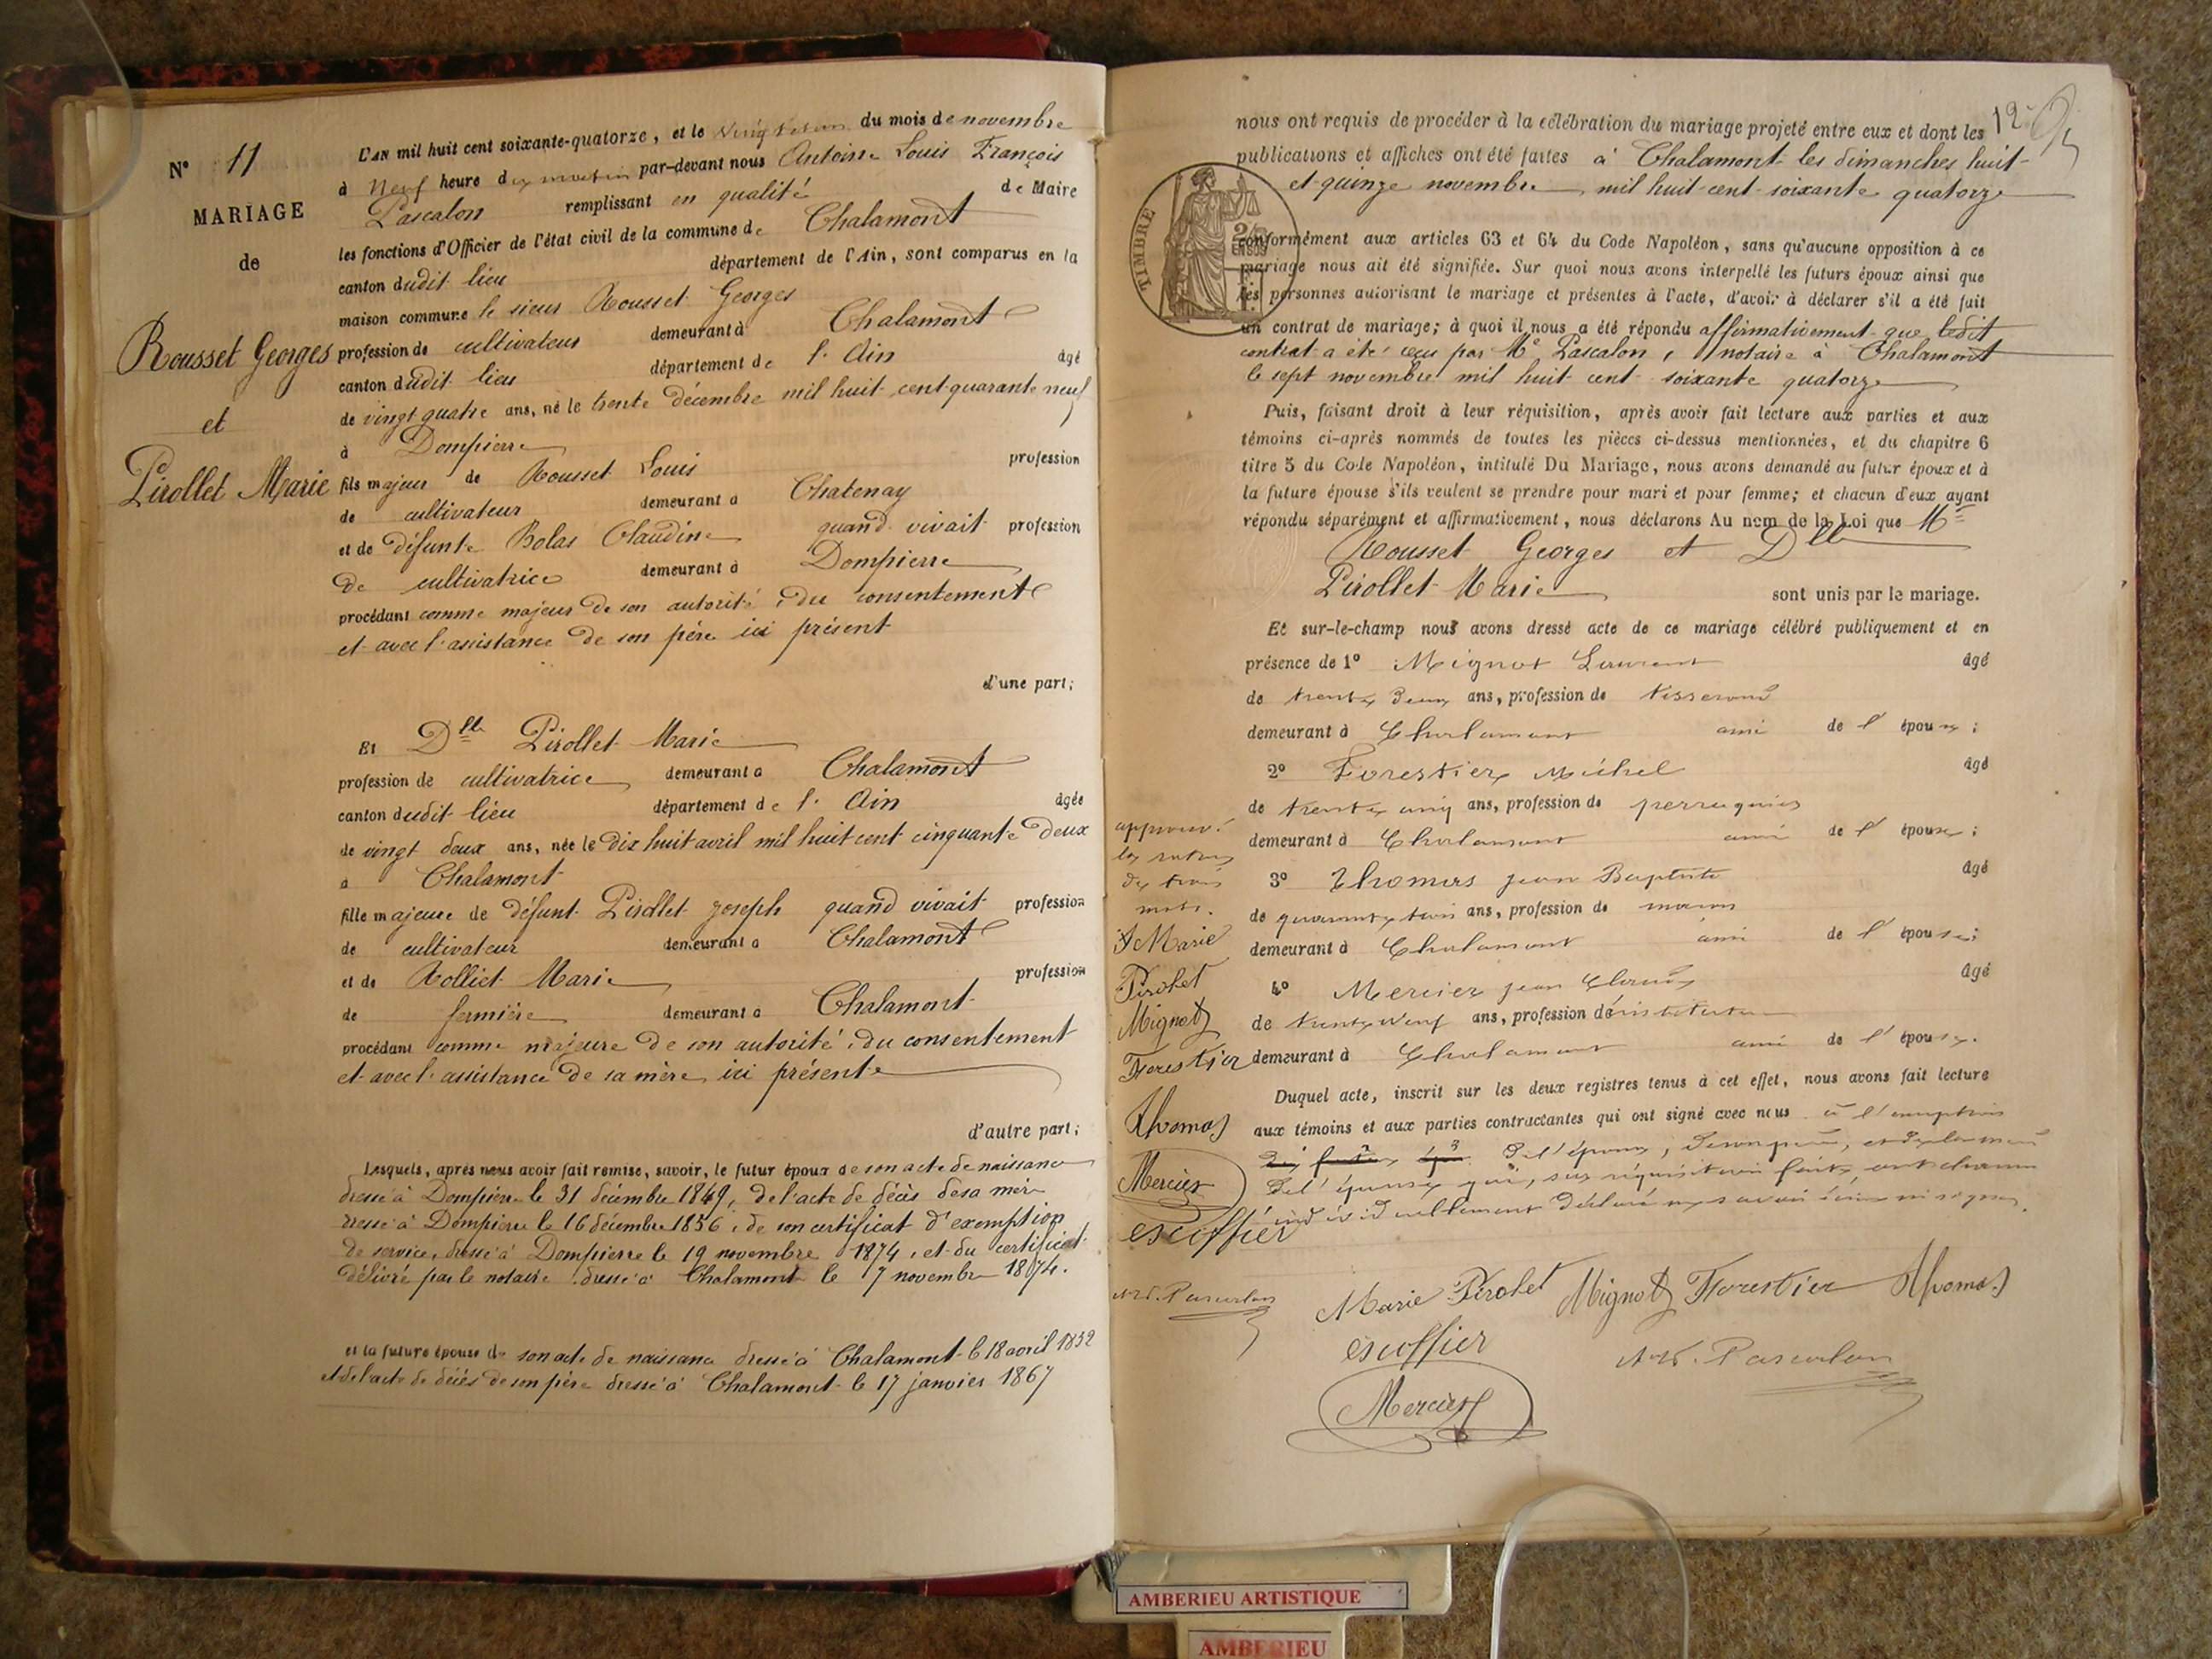 N° 11
MARIAGE
de
Rousset Georges
et
Pirollet Marie
L'AN mil huit cent soixante-quatorze, et le du mois de novembre
à Neuf heure du matin par-devant nous Antoine Louis François
Pascalon remplissant en qualité de Maire
les fonctions d'Officier de l'état civil de la commune de Chalamont
canton dudit lieu département de l'Ain, sont comparus en la
maison commune le sieur Rousset Georges
profession de cultivateur demeurant à Chalamont
canton dudit lieu département de l'Ain âgé
de vingt quatre ans, né le trente décembre mil huit cent quarante neuf
à Dompierre
fils majeur de Rousset Louis profession
de cultivateur demeurant à Chatenay
et de défunte Bolas Claudine quand vivait profession
de cultivatrice demeurant à Dompierre
procédant comme majeur de son autorité, du consentement
et avec l'assistance de son père ici présent
d'une part;
Et Dlle Pirollet Marie
profession de cultivatrice demeurant à Chalamont
canton dudit lieu département de l'Ain âgée
de vingt deux ans, née le dix huit avril mil huit cent cinquante deux
à Chalamont
fille majeure de défunt Pirollet joseph quand vivait profession
de cultivateur demeurant à Chalamont
et de Rolliet Marie profession
de fermière demeurant à Chalamont
procédant comme majeure de son autorité, du consentement
et avec l'assistance de sa mère ici présente
d'autre part;
Lesquels, après nous avoir fait remise, savoir, le futur époux de son acte de naissance
dressé à Dompierre le 31 décembre 1849, de l'acte de décès de sa mère
dressé à Dompierre le 16 décembre 1856, de son certificat d'exemption
de service, dressé à Dompierre le 19 novembre 1874, et du certificat
délivré par le notaire dressé à Chalamont le 7 novembre 1874.
et la future épouse de son acte de naissance dressé à Chalamont le 18 avril 1852
et de l'acte de décès de son père dressé à Chalamont le 17 janvier 1867
12
nous ont requis de procéder à la célébration du mariage projeté entre eux et dont les
publications et affiches ont été faites à Chalamont les dimanches huit
et quinze novembre mil huit cent soixante quatorze
TIMBRE
conformément aux articles 63 et 64 du Code Napoléon, sans qu'aucune opposition à ce
mariage nous ait été signifiée. Sur quoi nous avons interpellé les futurs époux ainsi que
les personnes autorisant le mariage et présentes à l'acte, d'avoir à déclarer s'il a été fait
un contrat de mariage; à quoi il nous a été répondu affirmativement que ledit
contrat a été reçu par Me Pascalon, notaire à Chalamont
le sept novembre mil huit cent soixante quatorze
Puis, faisant droit à leur réquisition, après avoir fait lecture aux parties et aux
témoins ci-après nommés de toutes les pièces ci-dessus mentionnées, et du chapitre 6
titre 5 du Code Napoléon, intitulé Du Mariage, nous avons demandé au futur époux et à
la future épouse s'ils veulent se prendre pour mari et pour femme; et chacun d'eux ayant
répondu séparément et affirmativement, nous déclarons Au nom de la Loi que Mr
Rousset Georges et Dlle
Pirollet Marie sont unis par le mariage.
Et sur-le-champ nous avons dressé acte de ce mariage célébré publiquement et en
présence de 1° Mignot Laurent âgé
de trente deux ans, profession de tisserand
demeurant à Chalamont ami de l'époux;
2° Forestier Michel âgé
de trente cinq ans, profession de perruquier
demeurant à Chalamont ami de l'épouse;
3° Thomas jean Baptiste âgé
de quarante trois ans, profession de maçon
demeurant à Chalamont ami de l'épouse;
4° Mercier jean Claude âgé
de trente neuf ans, profession d'instituteur
demeurant à Chalamont ami de l'épouse.
Duquel acte, inscrit sur les deux registres tenus à cet effet, nous avons fait lecture
aux témoins et aux parties contractantes qui ont signé avec nous à l'exception
de l'époux, de son père, et de la mère
de l'épouse qui, sur réquisition faite, ont chacun
individuellement déclaré ne savoir écrire ni signer.
approuvé
la rature
de trois
mots.
Marie
Pirolet
Mignot
Forestier
Thomas
Mercier
escoffier
Pascalon
Marie Pirolet Mignot Forestier Thomas
escoffier
Pascalon
Mercier
AMBERIEU ARTISTIQUE
AMBERIEU